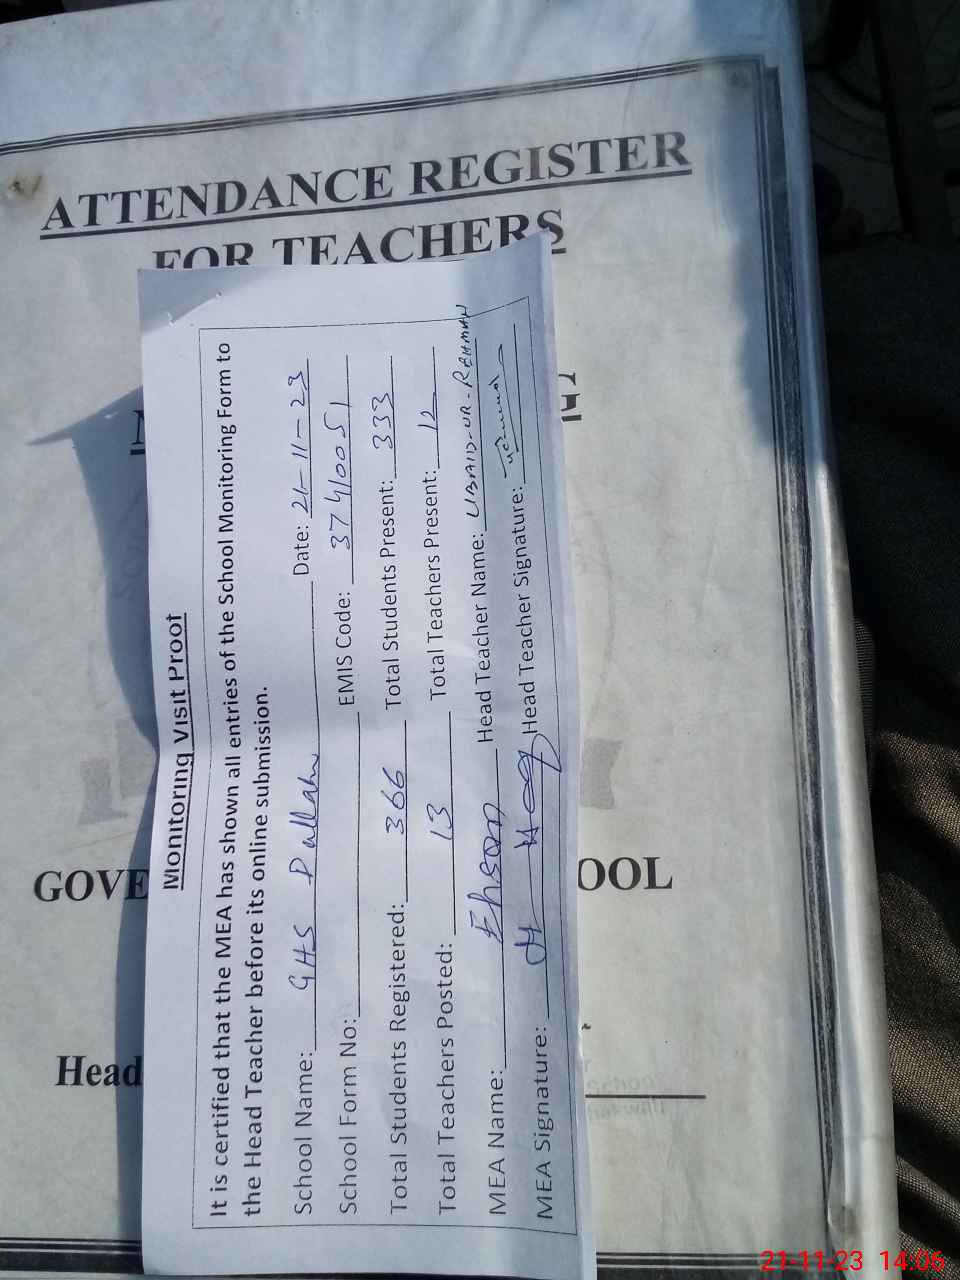 ATTENDANCE REGISTER
FOR TEACHERS
Monitoring Visit Proof
It is certified that the MEA has shown all entries of the School Monitoring Form to
the Head Teacher before its online submission.
School Name: GHS Dullah Date: 21-11-23
School Form No: EMIS Code: 37410051
Total Students Registered: 366 Total Students Present: 333
Total Teachers Posted: 13 Total Teachers Present: 12
MEA Name: Ehsan Head Teacher Name: UBAID-UR-REHMAN
MEA Signature: Head Teacher Signature:
GOVE OOL
Head
21-11-23 14:06